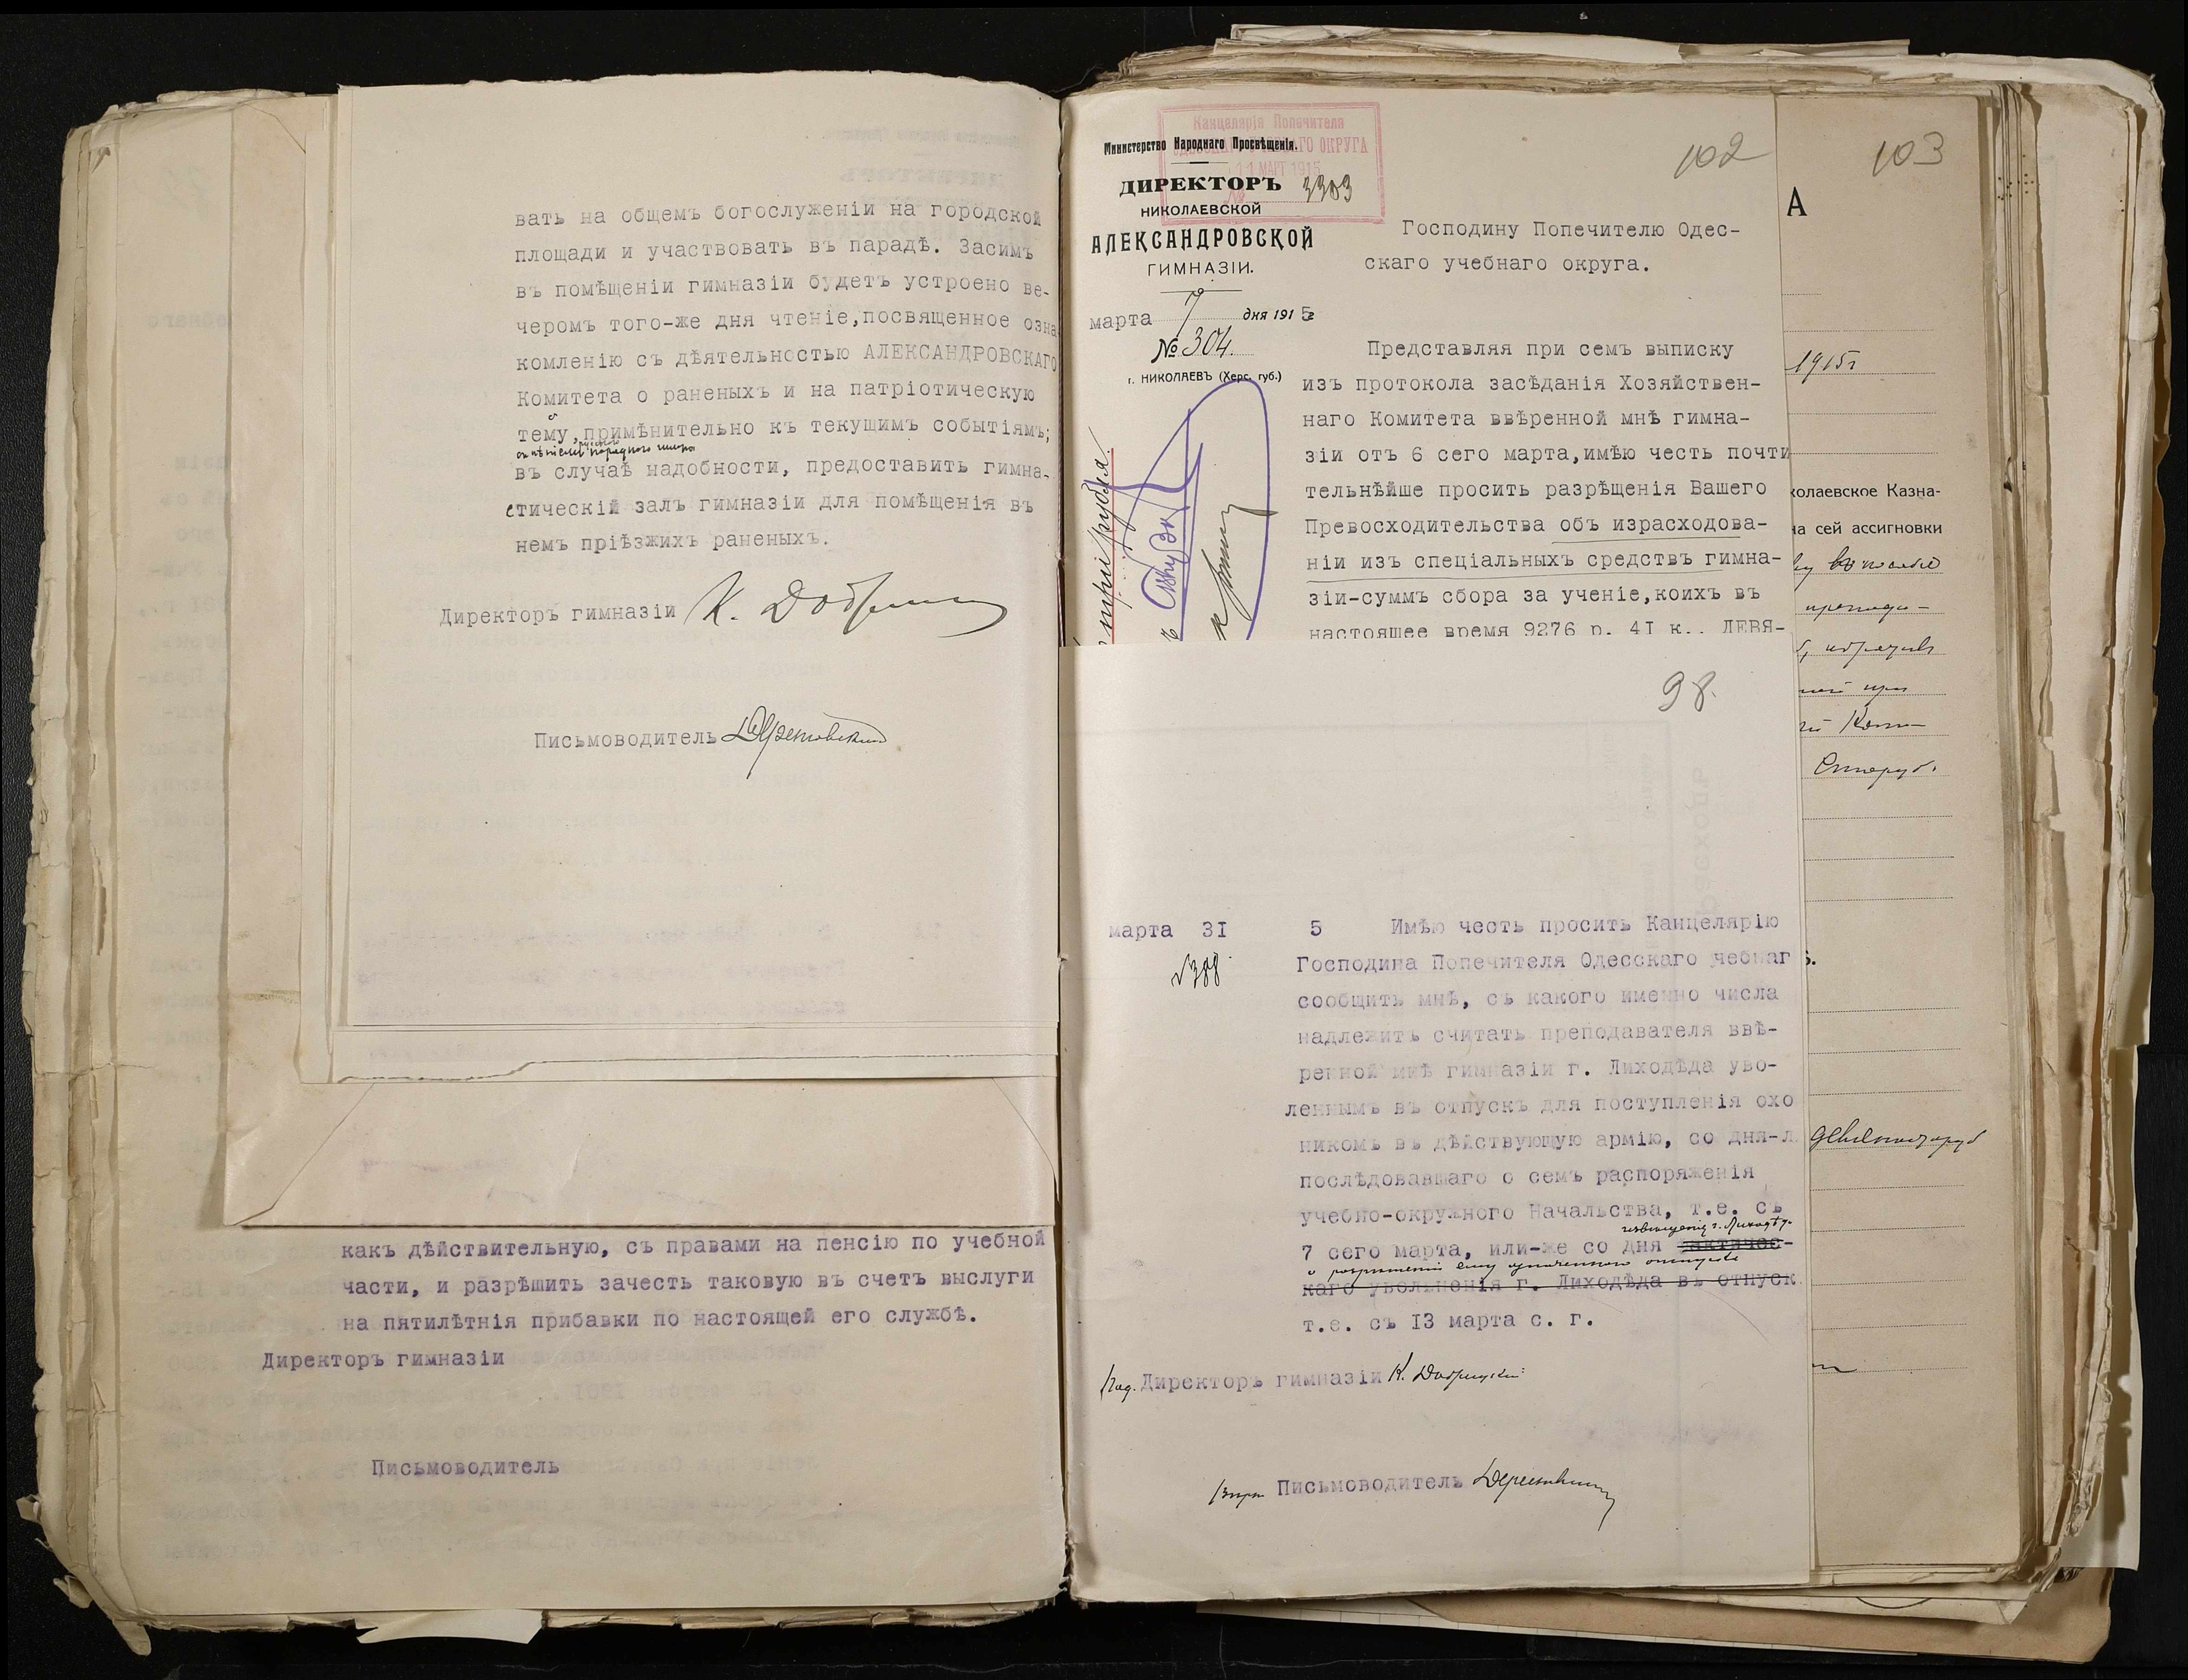 вать на общемъ богослуженіи на городской
площади и участвовать въ парадѣ. Засимъ
въ помѣщеніи гимназіи будетъ устроено ве-
черомъ того-же дня чтеніе,посвященное озна
комленію съ дѣятельностью АЛЕКСАНДРОВСКАГО
Комитета о раненыхъ и на патріотическую
тему,примѣнительно къ текущимъ событіямъ;
въ случаѣ надобности, предоставить гимна-
стическій залъ гимназіи для помѣщенія въ
немъ пріѣзжихъ раненыхъ.
Директоръ гимназіи К.
Письмоводитель
какъ дѣйствительную, съ правами на пенсію по учебной
части, и разрѣшить зачесть таковую въ счетъ выслуги
на пятилѣтнія прибавки по настоящей его службѣ.
Директоръ гимназіи
Письмоводитель
Канцелярія Попечителя
ОКРУГА
11 МАРТ 1915
№ 3303
Министерство Народнаго Просвѣщенія.
ДИРЕКТОРЪ
НИКОЛАЕВСКОЙ
АЛЕКСАНДРОВСКОЙ
ГИМНАЗІИ.
марта 7 дня 1915 г
№ 304.
г. НИКОЛАЕВЪ (Херс. губ.)
три рубля
102
Господину Попечителю Одес-
скаго учебнаго округа.
Представляя при семъ выписку
изъ протокола засѣданія Хозяйствен-
наго Комитета ввѣренной мнѣ гимна-
зіи отъ 6 сего марта,имѣю честь почти
тельнѣйше просить разрѣщенія Вашего
Превосходительства объ израсходова-
ніи изъ спеціальныхъ средствъ гимна-
зіи-суммъ сбора за ученіе,коихъ въ
настоящее время 9276 р. 4I к.. ДЕВЯ-
98.
марта 3I 5 Имѣю честь просить Канцелярію
№ 388
Господина Попечителя Одесскаго учебнаг
сообщить мнѣ, съ какого именно числа
надлежитъ считать преподавателя ввѣ-
ренной мнѣ гимназіи г. Лиходѣда уво-
леннымъ въ отпускъ для поступленія охо
никомъ въ дѣйствующую армію, со дня-л
послѣдовавшаго о семъ распоряженія
учебно-окружного Начальства, т.е. съ
извѣщенія г. Лиходѣда
7 сего марта, или-же со дня фактичес-
о разрѣшеніи ему означеннаго отпуска
каго увольненія г. Лиходѣда въ отпуск
т.е. съ I3 марта с. г.
Под. Директоръ гимназіи К.
Письмоводитель
103
А
1915г
колаевское Казна-
на сей ассигновки